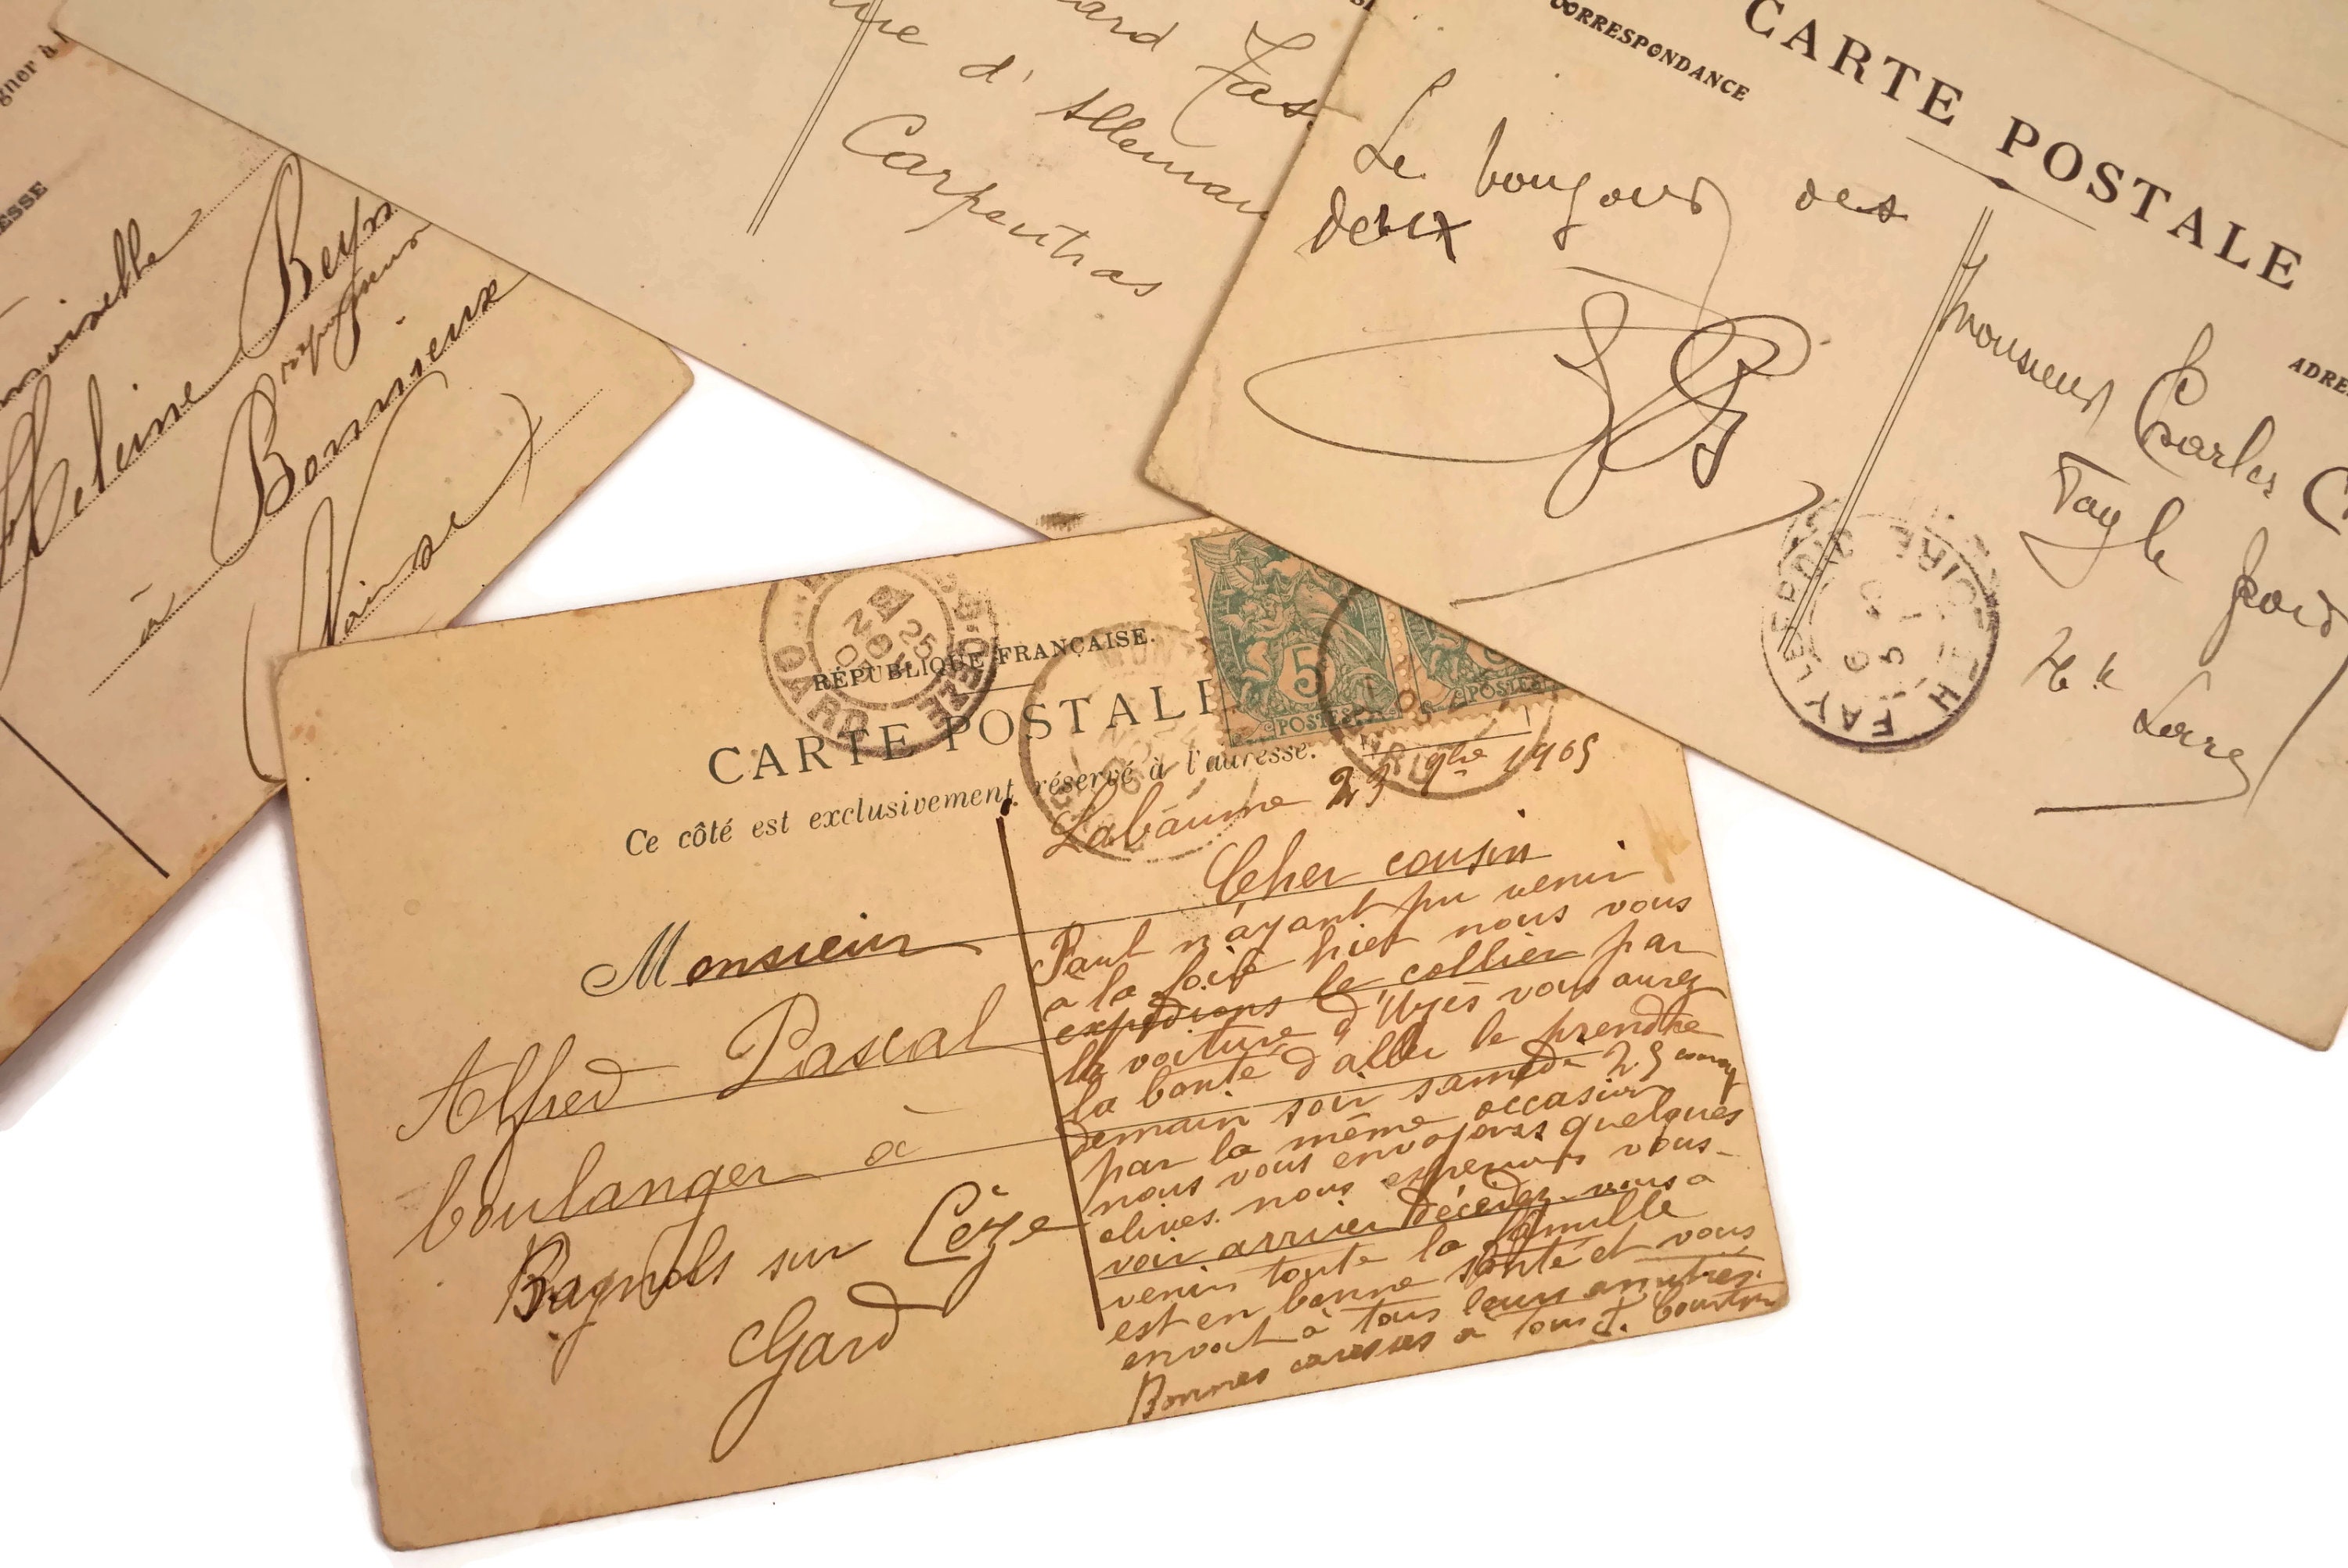 gner à l
ESSE
Beyss
à Bonnieux
Vaucluse
ard Fas
d'Alleman
Carpentras
CORRESPONDANCE
CARTE POSTALE
Le bonjour des
deux
ADRE
Monsieur Charles C
Fay le froid
Hte Loire
FAY LE FROID
H TE LOIRE
RÉPUBLIQUE FRANÇAISE.
CARTE POSTALE
Ce côté est exclusivement réservé à l'adresse.
GARD
5
POSTES
POSTES
Monsieur
Alfred Pascal
boulanger à
Bagnols sur Cèze
Gard
Labaume 23 9bre 1905
Cher cousin
Paul n'ayant pu venir
a la foire hier nous vous
expédions le collier par
la voiture d'Uzès vous aurez
la bonté d'aller le prendre
demain soir samedi 25 courant
par la même occasion
nous vous envoyons quelques
olives. nous esperons vous
voir arriver décidez-vous a
venir toute la famille
est en bonne santé et vous
envoit à tous leurs amitiés.
Bonnes caresses a tous J.